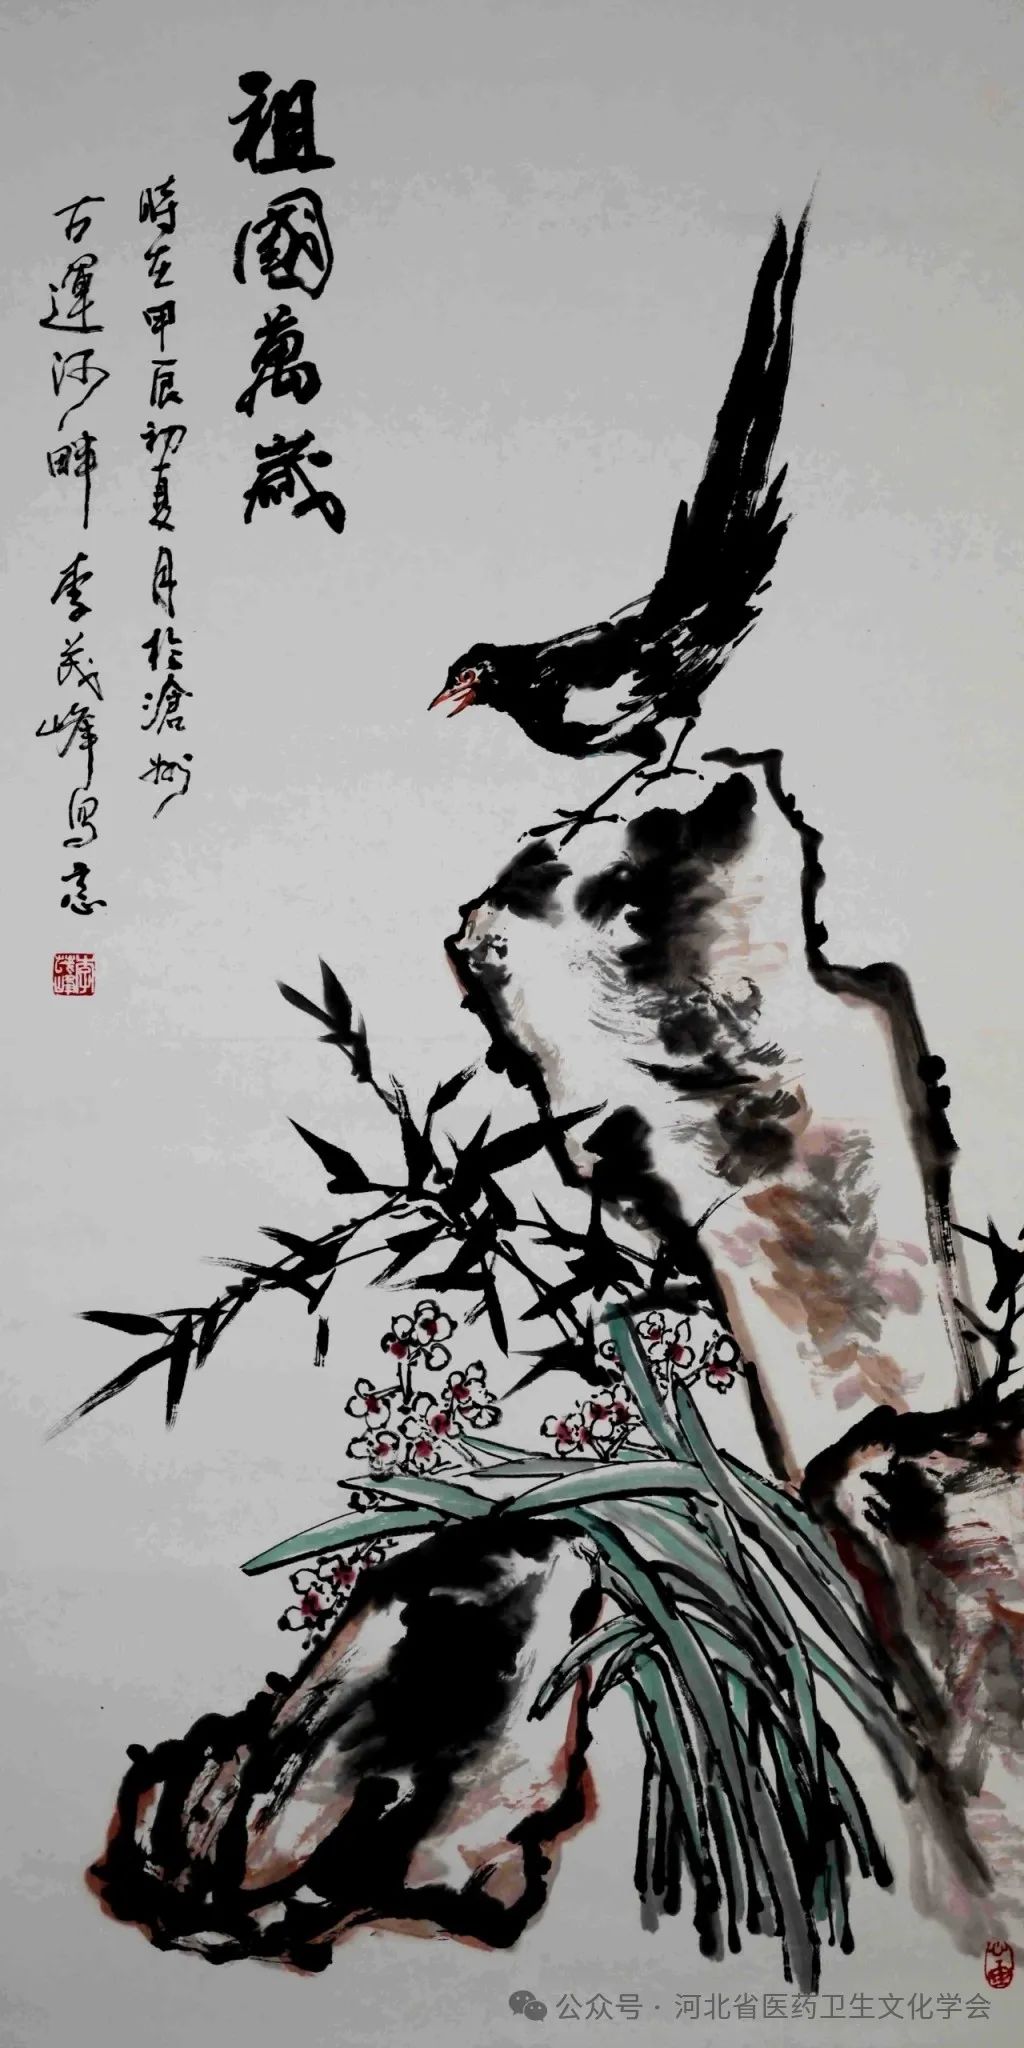 祖國萬歲
時在甲辰初夏月於滄州
古運河畔李茂峰写意
李茂峰
公众号·河北省医药卫生文化学会